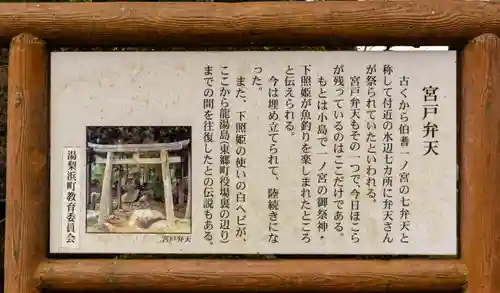 宮戸弁天
古くから伯耆一ノ宮の七弁天と
称して付近の水辺七カ所に弁天さん
が祭られていたといわれる。
宮戸弁天もその一つで、今日ほこら
が残っているのはここだけである。
もとは小島で一ノ宮の御祭神・
下照姫が魚釣りを楽しまれたところ
と伝えられる。
今は埋め立てられて、陸続きにな
った。
また、下照姫の使いの白ヘビが、
ここから龍湯島(東郷町役場裏の辺り)
までの間を往復したとの伝説もある。
宮戸弁天
湯梨浜町教育委員会